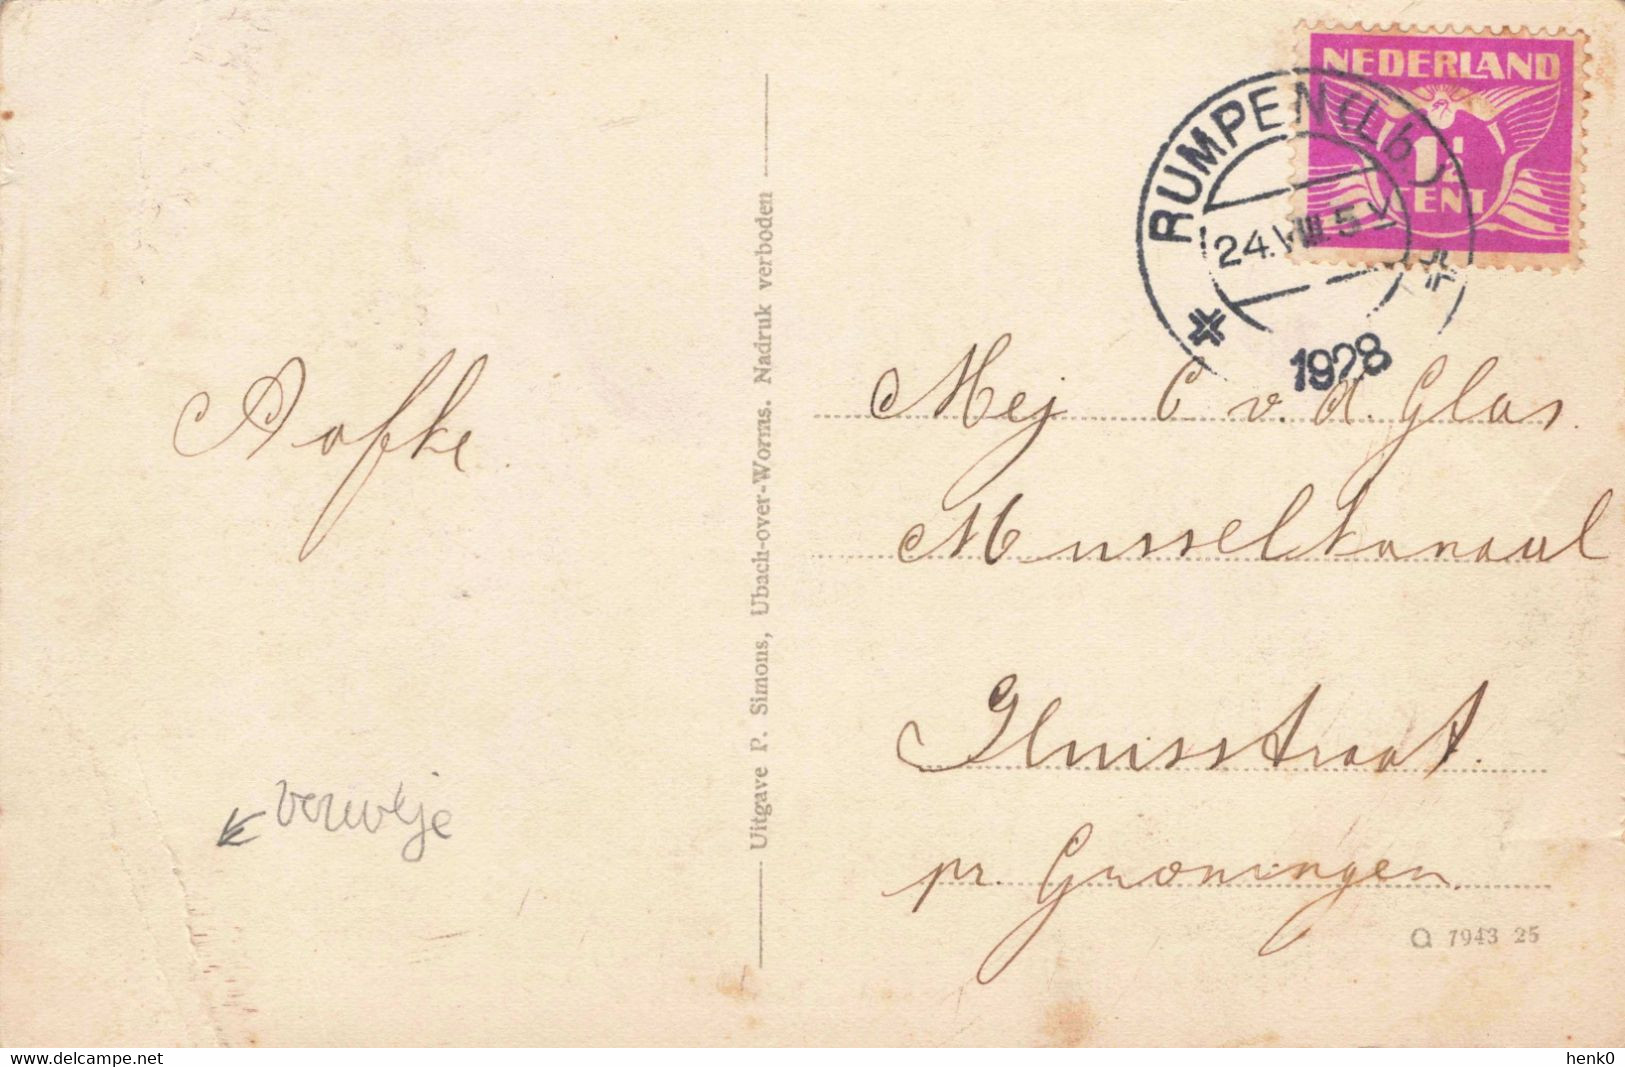 NEDERLAND
1½
CENT
RUMPEN (Lb.)
24.VIII.5
1928
Aafke.
Mej C v. d. Glas.
Musselkanaal
Sluisstraat.
pr. Groningen.
vouwtje
Uitgave P. Simons, Ubach-over-Worms. Nadruk verboden
Q 7943 25
www.delcampe.net
henk0